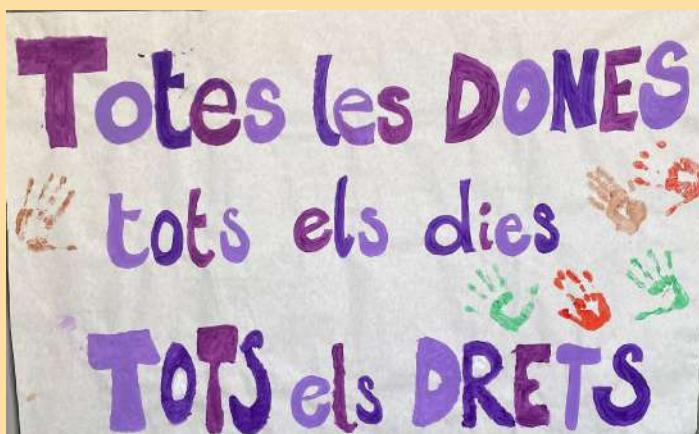 Totes les DONES
tots els dies
TOTS els DRETS